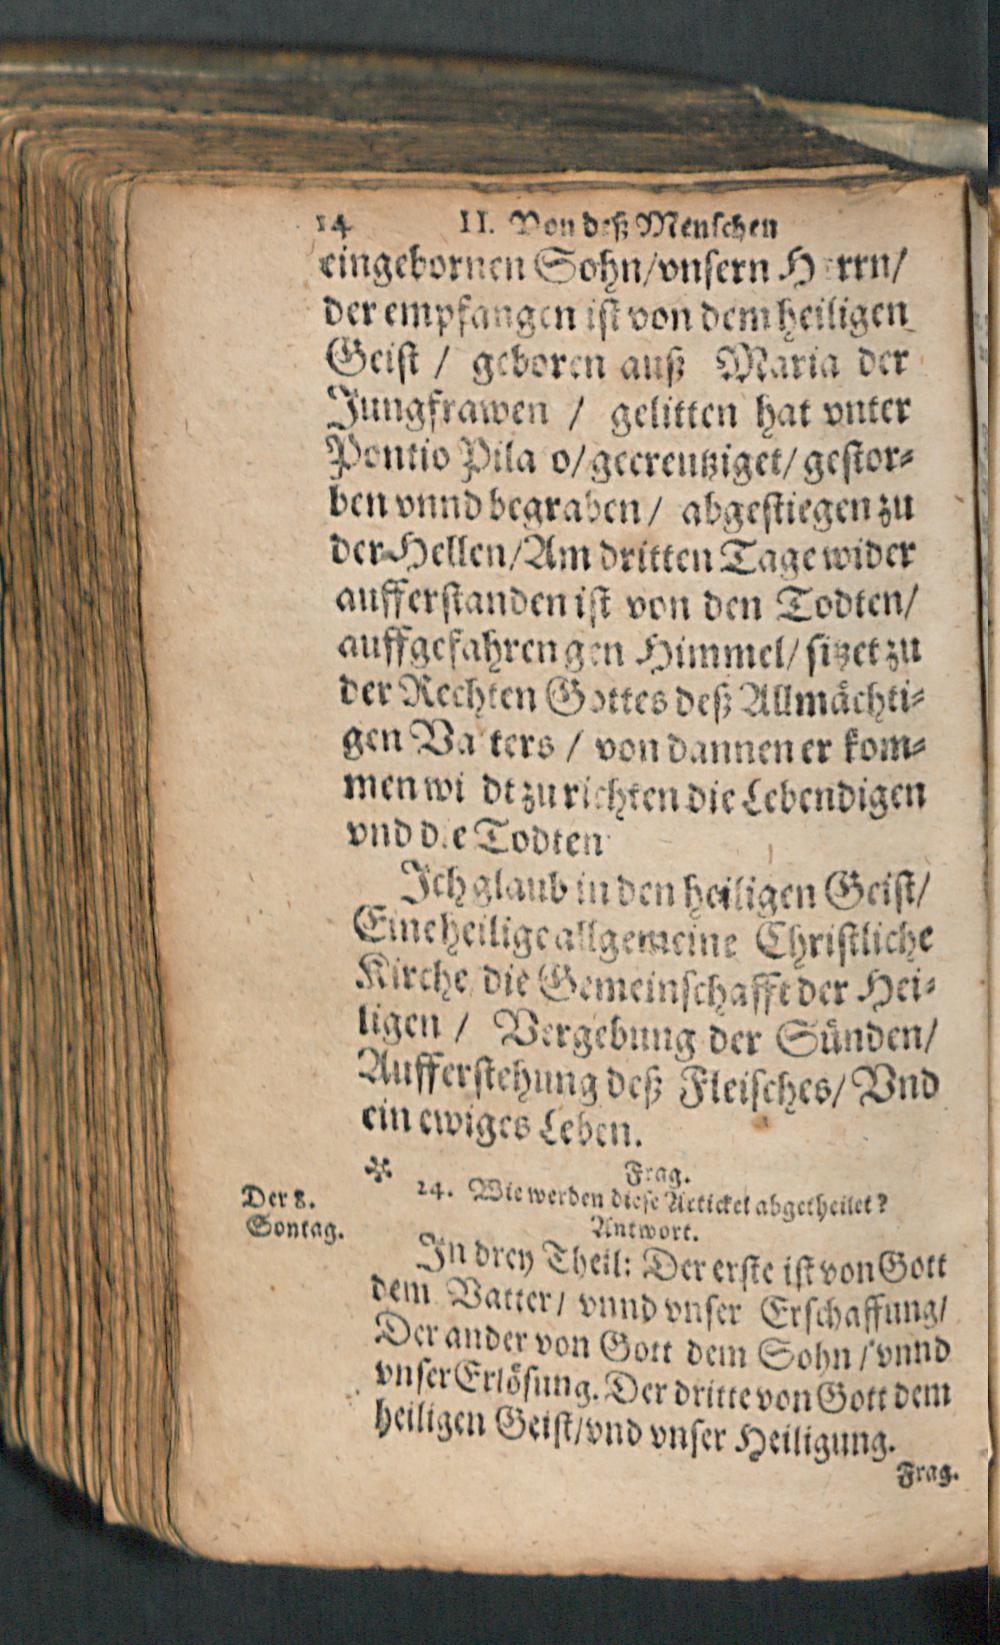 14 II. Von deß Menschen
eingebornen Sohn/vnsern Herrn/
der empfangen ist von dem heiligen
Geist / geboren auß Maria der
Jungfrawen / gelitten hat vnter
Pontio Pila o/gecreutziget/gestor-
ben vnnd begraben / abgestiegen zu
der Hellen/Am dritten Tage wider
aufferstanden ist von den Todten/
auffgefahren gen Himmel/sitzet zu
der Rechten Gottes deß Allmächti-
gen Vaters / von dannen er kom-
men wi dt zu richten die Lebendigen
vnd die Todten
Ich glaub in den heiligen Geist/
Eine heilige allgemeine Christliche
Kirche die Gemeinschafft der Hei-
ligen / Vergebung der Sünden/
Aufferstehung deß Fleisches/Vnd
ein ewiges Leben.
Frag.
Der 8.
Sontag.
24. Wie werden diese Artickel abgetheilet?
Antwort.
In drey Theil: Der erste ist von Gott
dem Vatter/ vnnd vnser Erschaffung/
Der ander von Gott dem Sohn/vnnd
vnser Erlösung. Der dritte von Gott dem
heiligen Geist/vnd vnser Heiligung.
Frag.